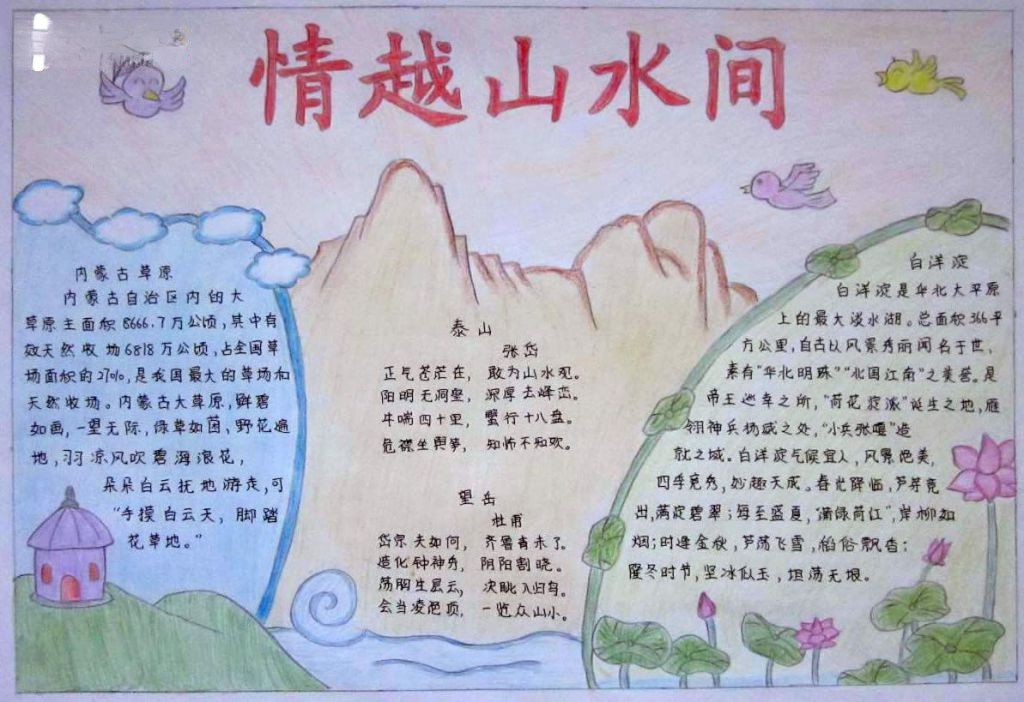 情越山水间
内蒙古草原
内蒙古自治区内的大
草原主面积8666.7万公顷,其中有
效天然牧场6818万公顷,占全国草
场面积的27%,是我国最大的草场和
天然牧场。内蒙古大草原,鲜碧
如画,一望无际,绿草如茵,野花遍
地,羽凉风吹碧海浪花,
朵朵白云抚地游走,可
“手摸白云天,脚踏
花草地。”
泰山
张岱
正气苍茫在,敢为山水观。
阳明无洞壑,深厚去峰峦。
牛喘四十里,蟹行十八盘。
危襟坐舆笋,知怖不知欢。
望岳
杜甫
岱宗夫如何,齐鲁青未了。
造化钟神秀,阴阳割晓。
荡胸生层云,决眦入归鸟。
会当凌绝顶,一览众山小。
白洋淀
白洋淀是华北大平原
上的最大淡水湖。总面积366平
方公里,自古以风景秀丽闻名于世,
素有“华北明珠”“北国江南”之美誉。是
帝王巡幸之所,“荷花淀派”诞生之地,雁
翎神兵扬威之处,“小兵张嘎”造
就之城。白洋淀气候宜人,风景绝美,
四季竞秀,妙趣天成。春光降临,芦芽竞
出,满淀碧翠;每至盛夏,“满绿荷红”,岸柳如
烟;时逢金秋,芦荡飞雪,稻俗飘香;
隆冬时节,坚冰似玉,坦荡无垠。